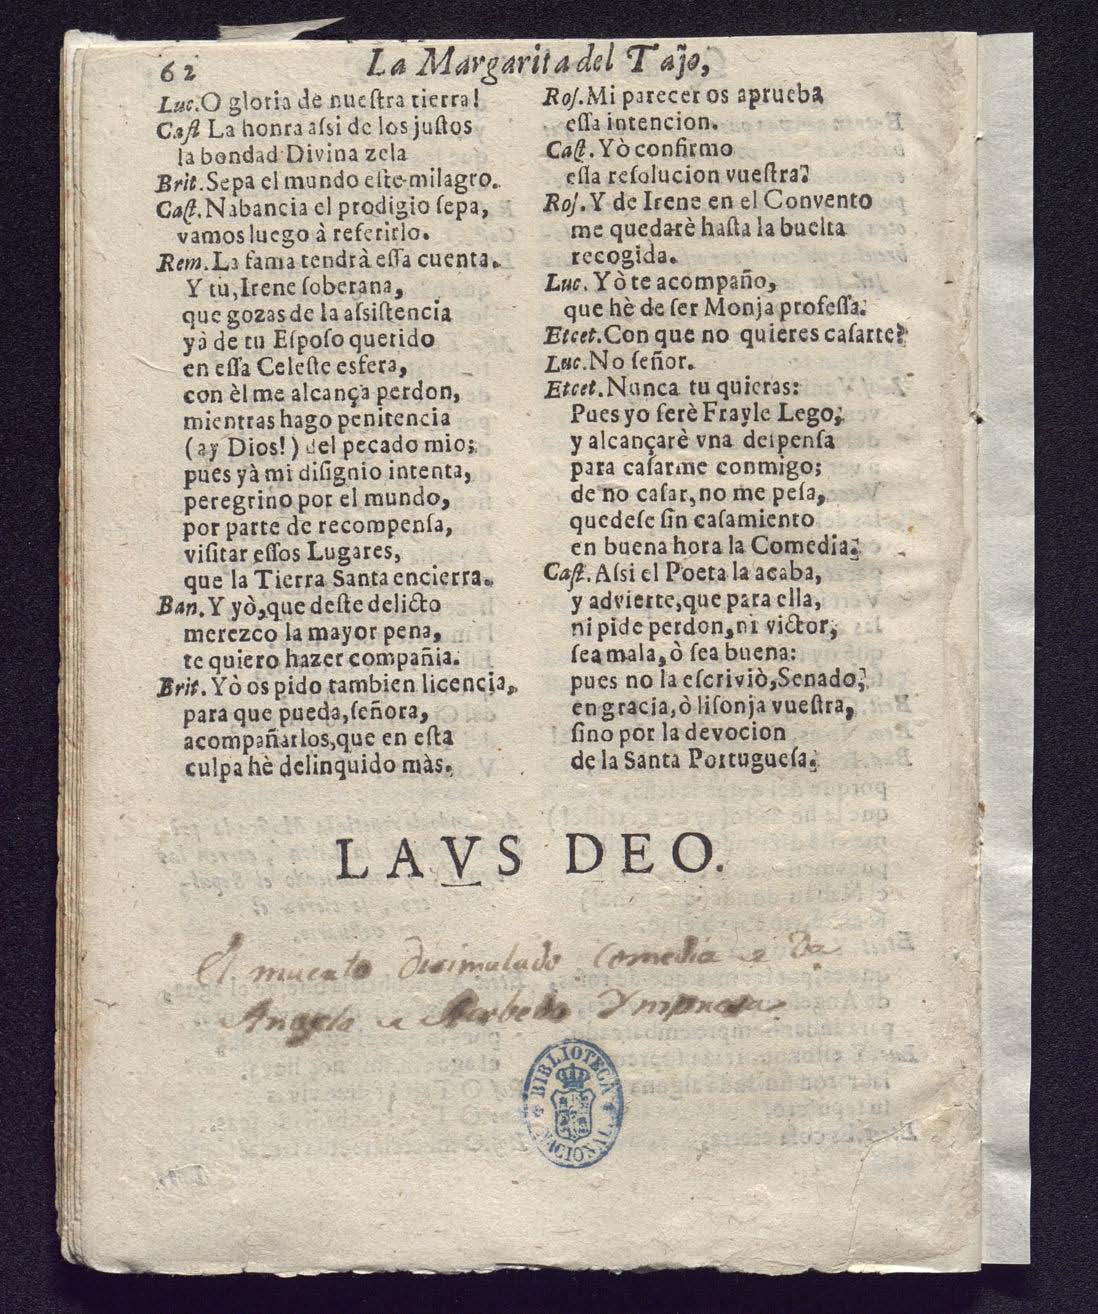 62
La Margarita del Tajo,
Luc. O gloria de nueſtra tierra!
Caſt La honra aſsi de los juſtos
la bondad Divina zela
Brit. Sepa el mundo eſte milagro.
Caſt. Nabancia el prodigio ſepa,
vamos luego à referirlo.
Rem. La fama tendrà eſſa cuenta.
Y tu, Irene ſoberana,
que gozas de la aſsiſtencia
yà de tu Eſpoſo querido
en eſſa Celeſte esfera,
con èl me alcança perdon,
mientras hago penitencia
(ay Dios!) del pecado mio;
pues yà mi diſignio intenta,
peregrino por el mundo,
por parte de recompenſa,
viſitar eſſos Lugares,
que la Tierra Santa encierra.
Ban. Y yò, que deſte delicto
merezco la mayor pena,
te quiero hazer compañia.
Brit. Yò os pido tambien licencia,
para que pueda, ſeñora,
acompañarlos, que en eſta
culpa hè delinquido màs.
Roſ. Mi parecer os aprueba
eſſa intencion.
Caſt. Yò confirmo
eſſa reſolucion vueſtra?
Roſ. Y de Irene en el Convento
me quedarè haſta la buelta
recogida.
Luc. Yò te acompaño,
que hè de ſer Monja profeſſa.
Etcet. Con que no quieres caſarte?
Luc. No ſeñor.
Etcet. Nunca tu quieras:
Pues yo ſerè Frayle Lego;
y alcançarè vna deſpenſa
para caſarme conmigo;
de no caſar, no me peſa,
quedeſe ſin caſamiento
en buena hora la Comedia;
Caſt. Aſsi el Poeta la acaba,
y advierte, que para ella,
ni pide perdon, ni victor,
ſea mala, ò ſea buena:
pues no la eſcriviò, Senado,
en gracia, ò liſonja vueſtra,
ſino por la devocion
de la Santa Portugueſa.
LAVS DEO.
El muerto disimulado comedia
Angela
BIBLIOTECA NACIONAL